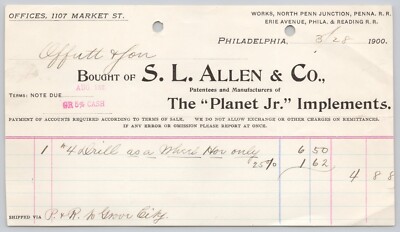 OFFICES, 1107 MARKET ST.
WORKS, NORTH PENN JUNCTION, PENNA. R. R.
ERIE AVENUE, PHILA. & READING R. R.
PHILADELPHIA, 3/28 1900.
Offutt & Son
BOUGHT OF S. L. ALLEN & CO.,
Patentees and Manufacturers of
The "Planet Jr." Implements.
TERMS: NOTE DUE AUG 1ST
OR 5% CASH
PAYMENT OF ACCOUNTS REQUIRED ACCORDING TO TERMS OF SALE. WE DO NOT ALLOW EXCHANGE OR OTHER CHARGES ON REMITTANCES.
IF ANY ERROR OR OMISSION PLEASE REPORT AT ONCE.
1 #4 Drill as a Wheel Hoe only 6 50
25% 1 62
4 88
SHIPPED VIA P. & R. to Grove City